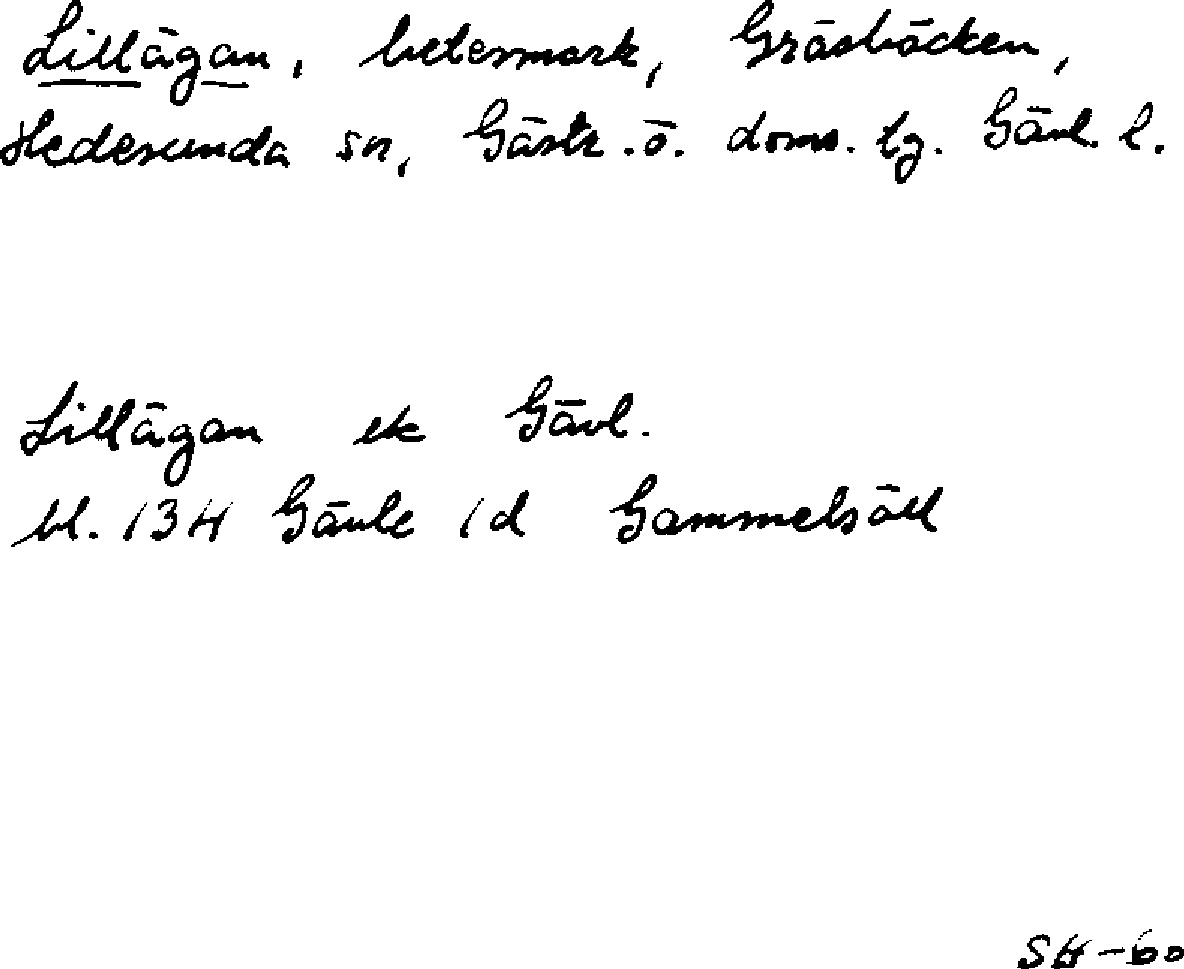 Lillägan, betesmark, Gräsbäcken,
Hedesunda sn, Gästr. ö. doms. tg. Gävl. l.
Lillägan ek Gävl.
bl. 134 Gävle 1d Gammelsäll
SH-60